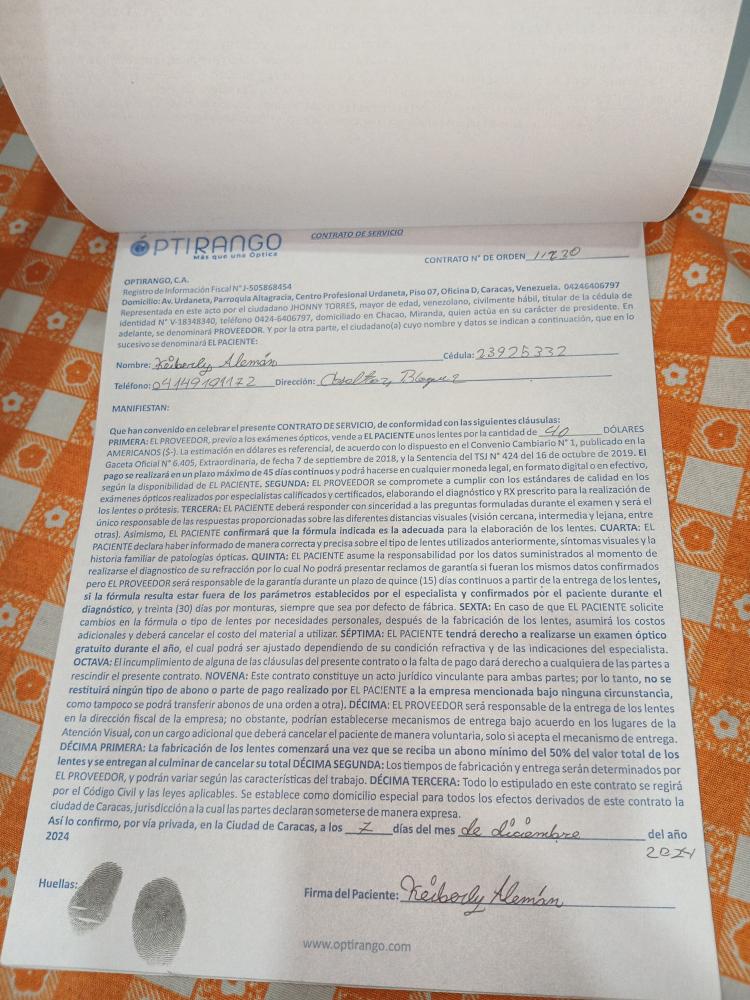 ÓPTIRANGO
Más que una Óptica
CONTRATO DE SERVICIO
CONTRATO N° DE ORDEN 11230
OPTIRANGO, C.A.
Registro de Información Fiscal N° J-505868454
Domicilio: Av. Urdaneta, Parroquia Altagracia, Centro Profesional Urdaneta, Piso 07, Oficina D, Caracas, Venezuela. 04246406797
Representada en este acto por el ciudadano JHONNY TORRES, mayor de edad, venezolano, civilmente hábil, titular de la cédula de
identidad N° V-18348340, teléfono 0424-6406797, domiciliado en Chacao, Miranda, quien actúa en su carácter de presidente. En
adelante, se denominará PROVEEDOR. Y por la otra parte, el ciudadano(a) cuyo nombre y datos se indican a continuación, que en lo
sucesivo se denominará EL PACIENTE:
Nombre: Keiberly Alemán Cédula: 23925332
Teléfono: 04149191172 Dirección:
MANIFIESTAN:
Que han convenido en celebrar el presente CONTRATO DE SERVICIO, de conformidad con las siguientes cláusulas:
PRIMERA: EL PROVEEDOR, previo a los exámenes ópticos, vende a EL PACIENTE unos lentes por la cantidad de 40 DÓLARES
AMERICANOS ($-). La estimación en dólares es referencial, de acuerdo con lo dispuesto en el Convenio Cambiario N° 1, publicado en la
Gaceta Oficial N° 6.405, Extraordinaria, de fecha 7 de septiembre de 2018, y la Sentencia del TSJ N° 424 del 16 de octubre de 2019. El
pago se realizará en un plazo máximo de 45 días continuos y podrá hacerse en cualquier moneda legal, en formato digital o en efectivo,
según la disponibilidad de EL PACIENTE. SEGUNDA: EL PROVEEDOR se compromete a cumplir con los estándares de calidad en los
exámenes ópticos realizados por especialistas calificados y certificados, elaborando el diagnóstico y RX prescrito para la realización de
los lentes o prótesis. TERCERA: EL PACIENTE deberá responder con sinceridad a las preguntas formuladas durante el examen y será el
único responsable de las respuestas proporcionadas sobre las diferentes distancias visuales (visión cercana, intermedia y lejana, entre
otras). Asimismo, EL PACIENTE confirmará que la fórmula indicada es la adecuada para la elaboración de los lentes. CUARTA: EL
PACIENTE declara haber informado de manera correcta y precisa sobre el tipo de lentes utilizados anteriormente, síntomas visuales y la
historia familiar de patologías ópticas. QUINTA: EL PACIENTE asume la responsabilidad por los datos suministrados al momento de
realizarse el diagnostico de su refracción por lo cual No podrá presentar reclamos de garantía si fueran los mismos datos confirmados
pero EL PROVEEDOR será responsable de la garantía durante un plazo de quince (15) días continuos a partir de la entrega de los lentes,
si la fórmula resulta estar fuera de los parámetros establecidos por el especialista y confirmados por el paciente durante el
diagnóstico, y treinta (30) días por monturas, siempre que sea por defecto de fábrica. SEXTA: En caso de que EL PACIENTE solicite
cambios en la fórmula o tipo de lentes por necesidades personales, después de la fabricación de los lentes, asumirá los costos
adicionales y deberá cancelar el costo del material a utilizar. SÉPTIMA: EL PACIENTE tendrá derecho a realizarse un examen óptico
gratuito durante el año, el cual podrá ser ajustado dependiendo de su condición refractiva y de las indicaciones del especialista.
OCTAVA: El incumplimiento de alguna de las cláusulas del presente contrato o la falta de pago dará derecho a cualquiera de las partes a
rescindir el presente contrato. NOVENA: Este contrato constituye un acto jurídico vinculante para ambas partes; por lo tanto, no se
restituirá ningún tipo de abono o parte de pago realizado por EL PACIENTE a la empresa mencionada bajo ninguna circunstancia,
como tampoco se podrá transferir abonos de una orden a otra). DÉCIMA: EL PROVEEDOR será responsable de la entrega de los lentes
en la dirección fiscal de la empresa; no obstante, podrían establecerse mecanismos de entrega bajo acuerdo en los lugares de la
Atención Visual, con un cargo adicional que deberá cancelar el paciente de manera voluntaria, solo si acepta el mecanismo de entrega.
DÉCIMA PRIMERA: La fabricación de los lentes comenzará una vez que se reciba un abono mínimo del 50% del valor total de los
lentes y se entregan al culminar de cancelar su total DÉCIMA SEGUNDA: Los tiempos de fabricación y entrega serán determinados por
EL PROVEEDOR, y podrán variar según las características del trabajo. DÉCIMA TERCERA: Todo lo estipulado en este contrato se regirá
por el Código Civil y las leyes aplicables. Se establece como domicilio especial para todos los efectos derivados de este contrato la
ciudad de Caracas, jurisdicción a la cual las partes declaran someterse de manera expresa.
Así lo confirmo, por vía privada, en la Ciudad de Caracas, a los 7 días del mes de diciembre del año
2024 2024
Huellas:
Firma del Paciente: Keiberly Alemán
www.optirango.com